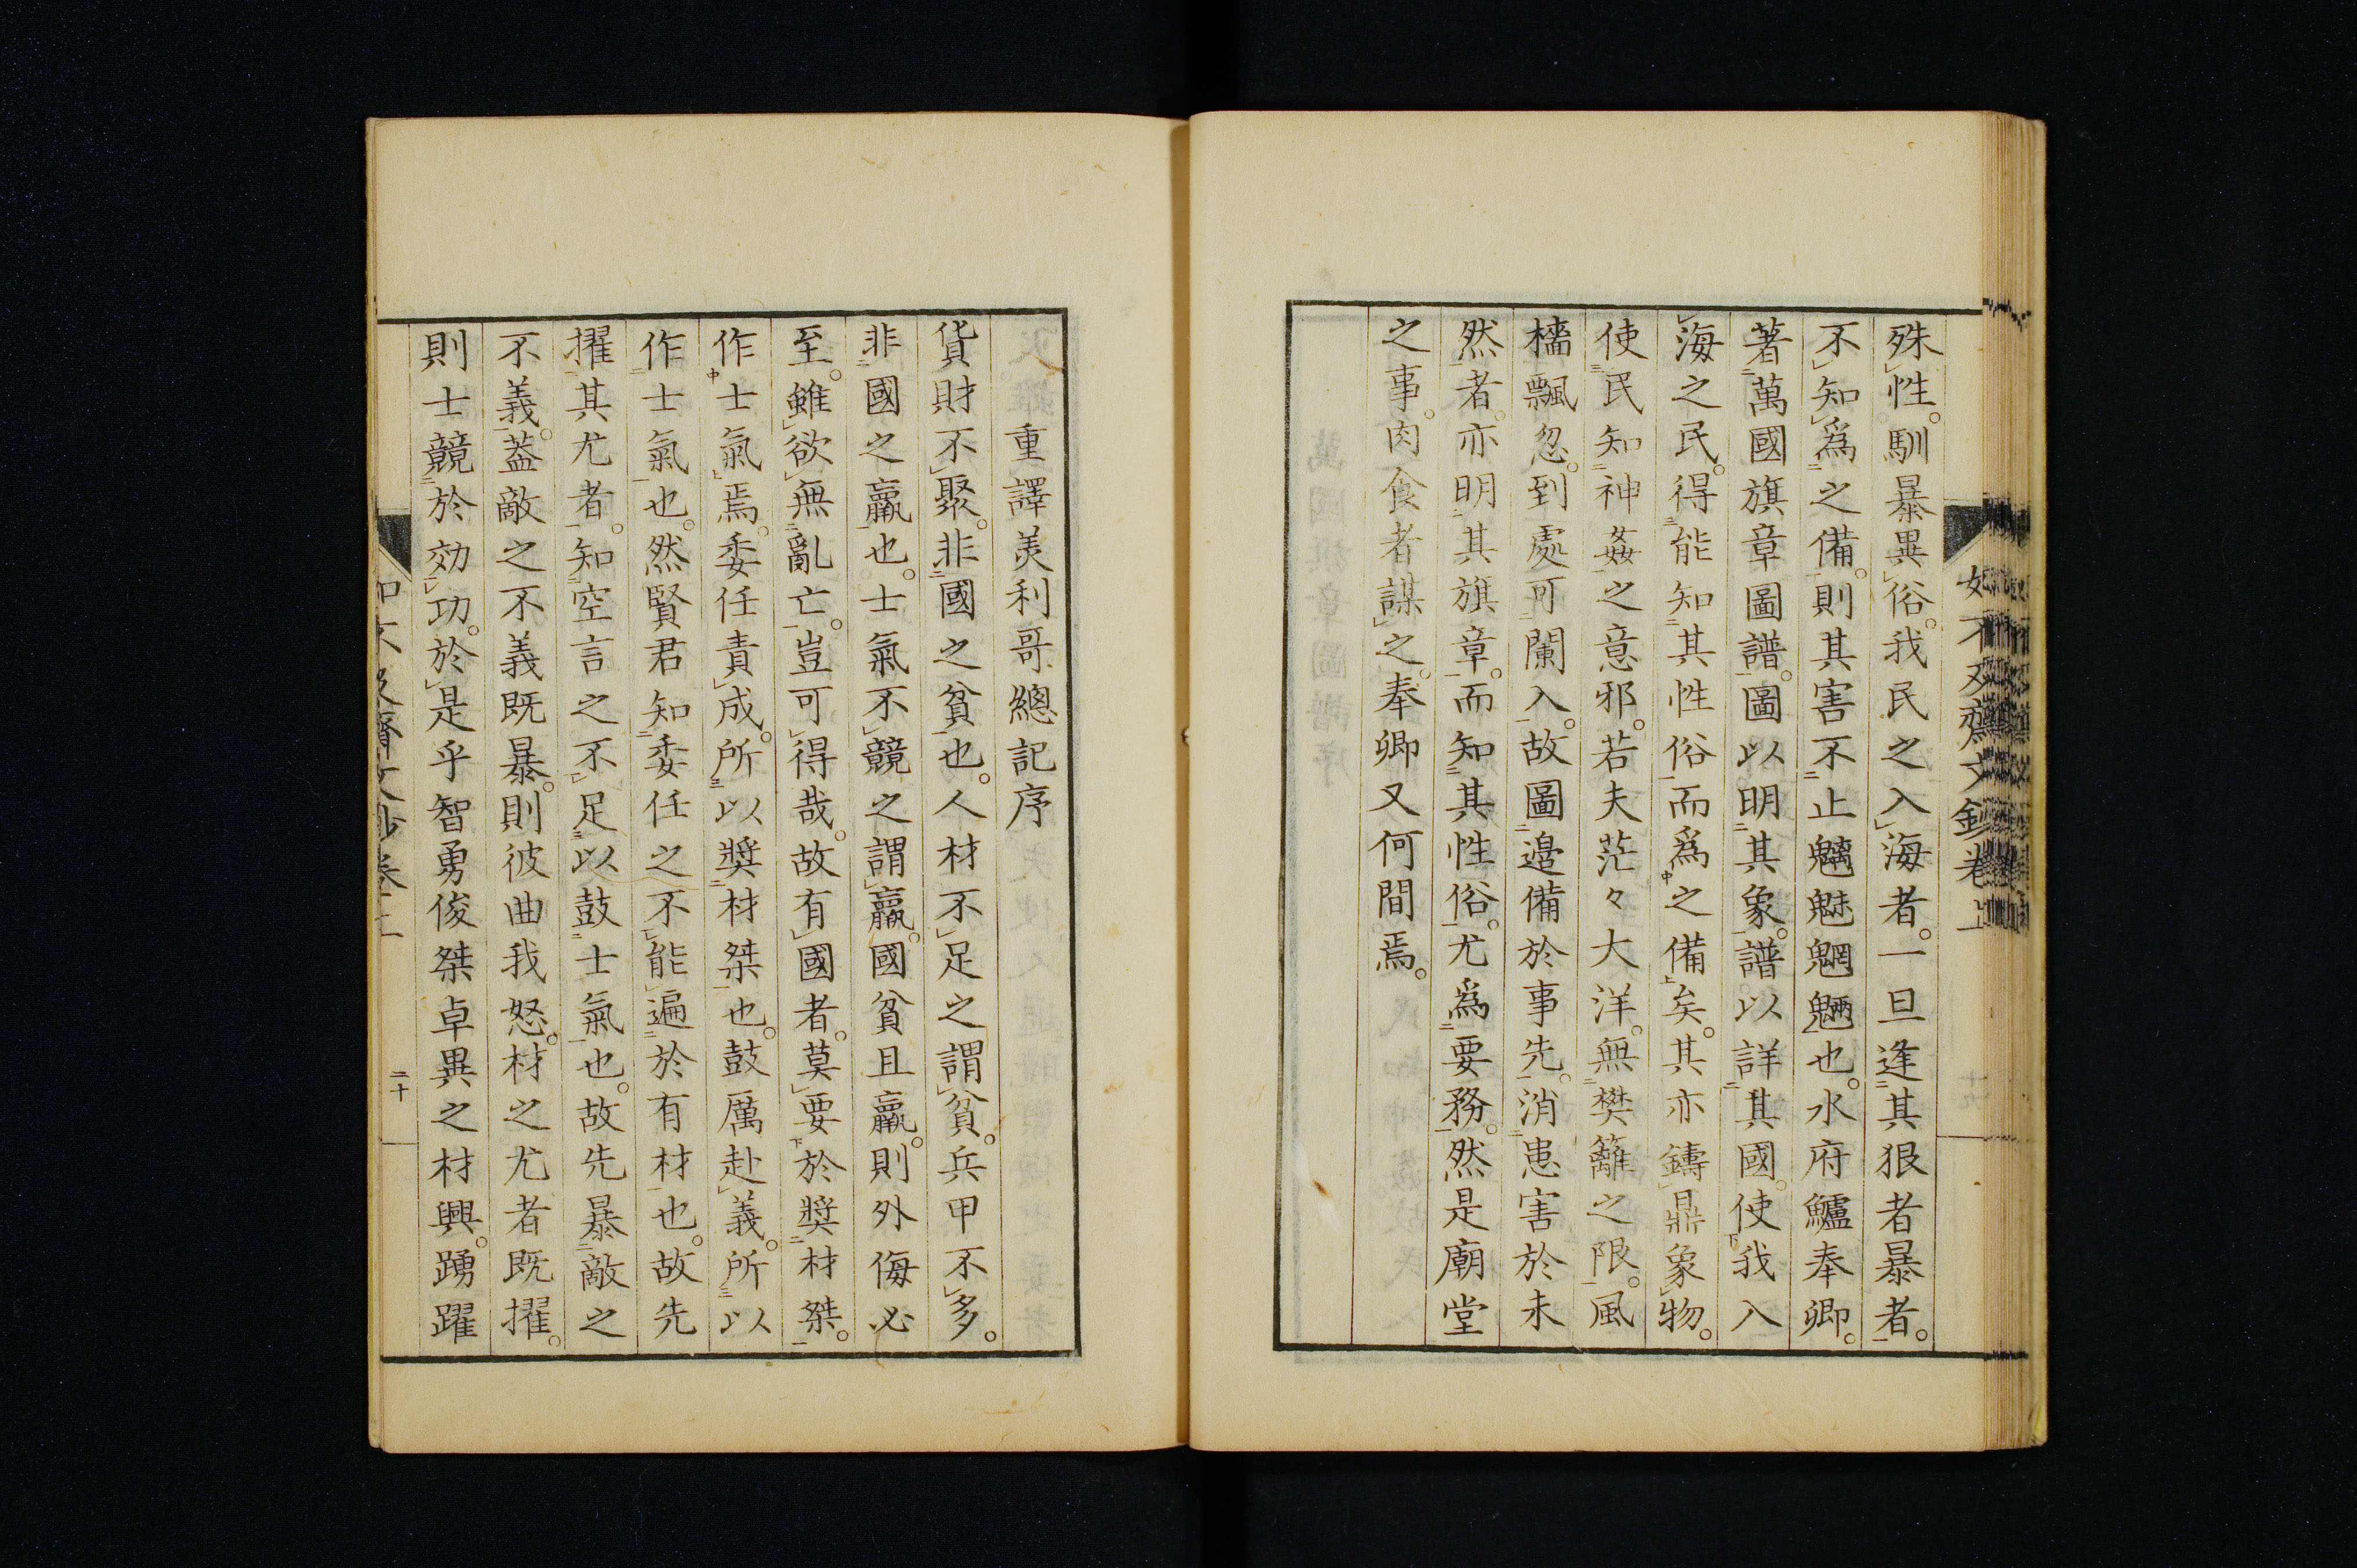 殊性。馴暴異俗。我民之入海者。一旦逢其狠者暴者。
不知爲之備。則其害不止魑魅魍魎也。水府鱸奉卿。
著萬國旗章圖譜。圖以明其象。譜以詳其國。使我入
海之民。得能知其性俗而爲之備矣。其亦鑄鼎象物。
使民知神姦之意邪。若夫茫々大洋。無樊籬之限。風
檣飄忽。到處可闌入。故圖邉備於事先。消患害於未
然者。亦明其旗章。而知其性俗。尤爲要務。然是廟堂
之事。肉食者謀之。奉卿又何間焉。
重譯美利哥總記序
貨財不聚。非國之貧也。人材不足之謂貧。兵甲不多。
非國之羸也。士氣不競之謂羸。國貧且羸。則外侮必
至。雖欲無亂亡。豈可得哉。故有國者。莫要於奬材桀。
作士氣焉。委任責成。所以奬材桀也。鼓厲赴義。所以
作士氣也。然賢君知委任之不能遍於有材也。故先
擢其尤者。知空言之不足以鼓士氣也。故先暴敵之
不義。蓋敵之不義既暴。則彼曲我怒。材之尤者既擢。
則士競於効功。於是乎智勇俊桀卓異之材興。踴躍
二十